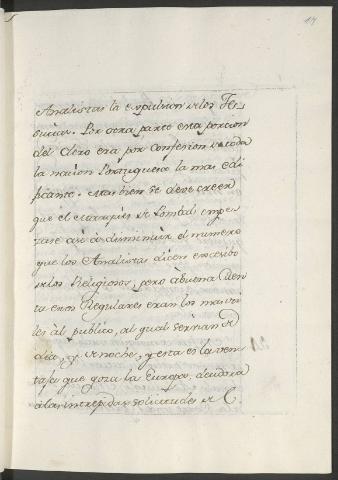 17
Analistas la expulsion de los Jes-
uitas. Por otra parte esta porcion
del Clero era por Confesion de toda
la nacion Portuguesa la mas edi-
ficante. Mas bien se debe creer
que el Marqués de Pombal empe-
zase así á disminuir el numero
que los Analistas dicen excesibo
de los Religiosos, pero á buena Cuen-
ta estos Regulares eran los mas uti-
les al publico, al qual servian de
dia, y de noche, y esta es la ven-
taja que goza la Europa deudora
á las intrepidas solicitudes de C.